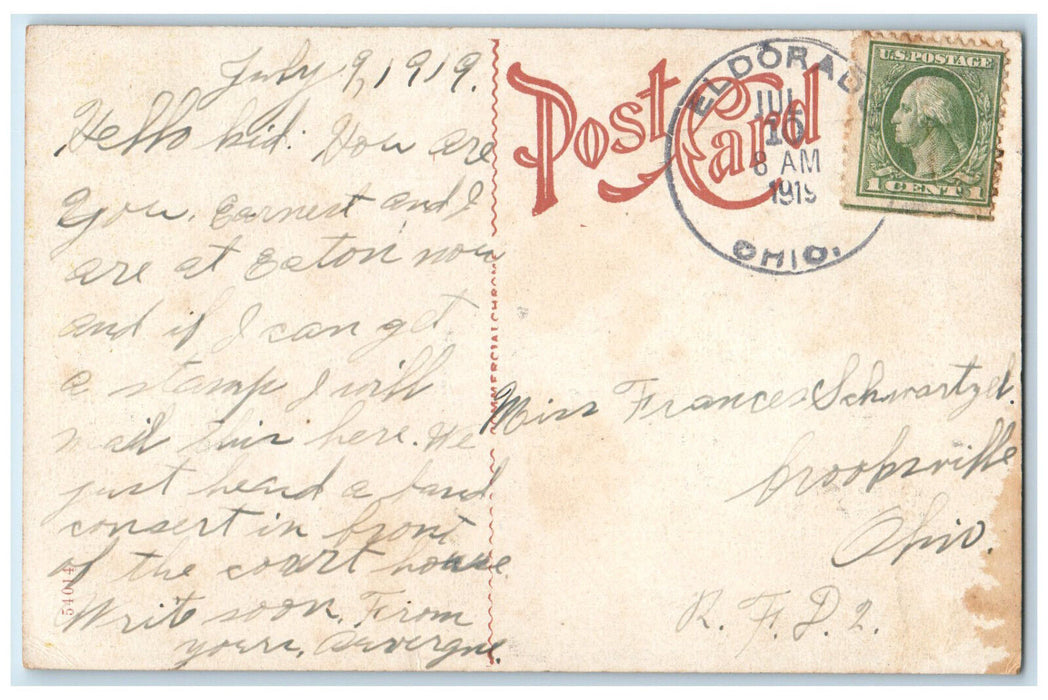 July 9, 1919.
Hello kid. How are
you. Earnest and I
are at Eaton now
and if I can get
a stamp I will
mail this here. We
just heard a band
consert in front
of the court house.
Write soon. From
yours,
Post Card
ELDORADO
JUL
10
8 AM
1919
OHIO.
U.S. POSTAGE
1 CENT 1
Miss Frances Schwartzel.
Crooksville
Ohio.
R. F. D. 2.
54014